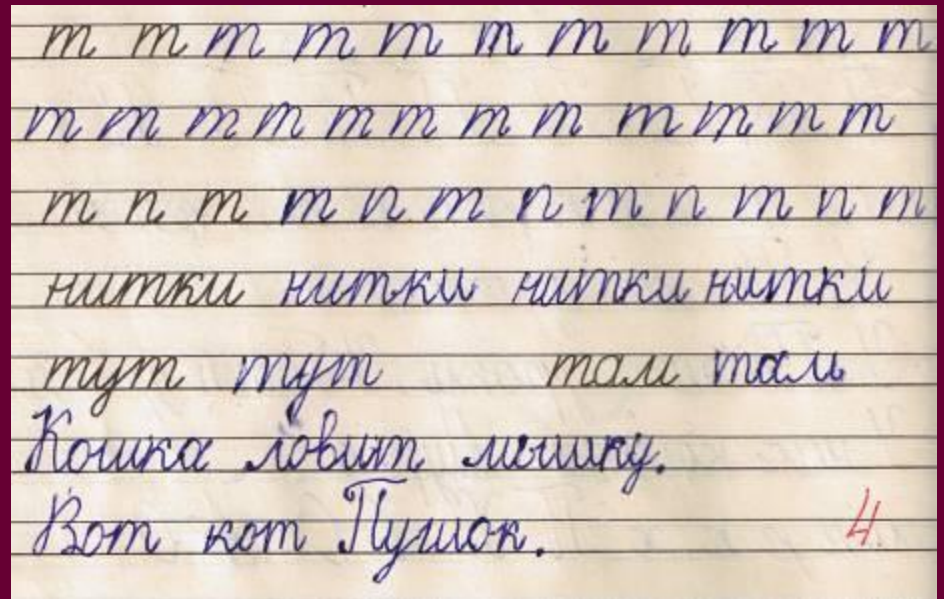 т т т т т т т т т т т
т т т т т т т т т т т т
т п т т п т п т п т п т
нитки нитки нитки нитки
тут тут там там
Кошка ловит мышку.
Вот кот Пушок. 4